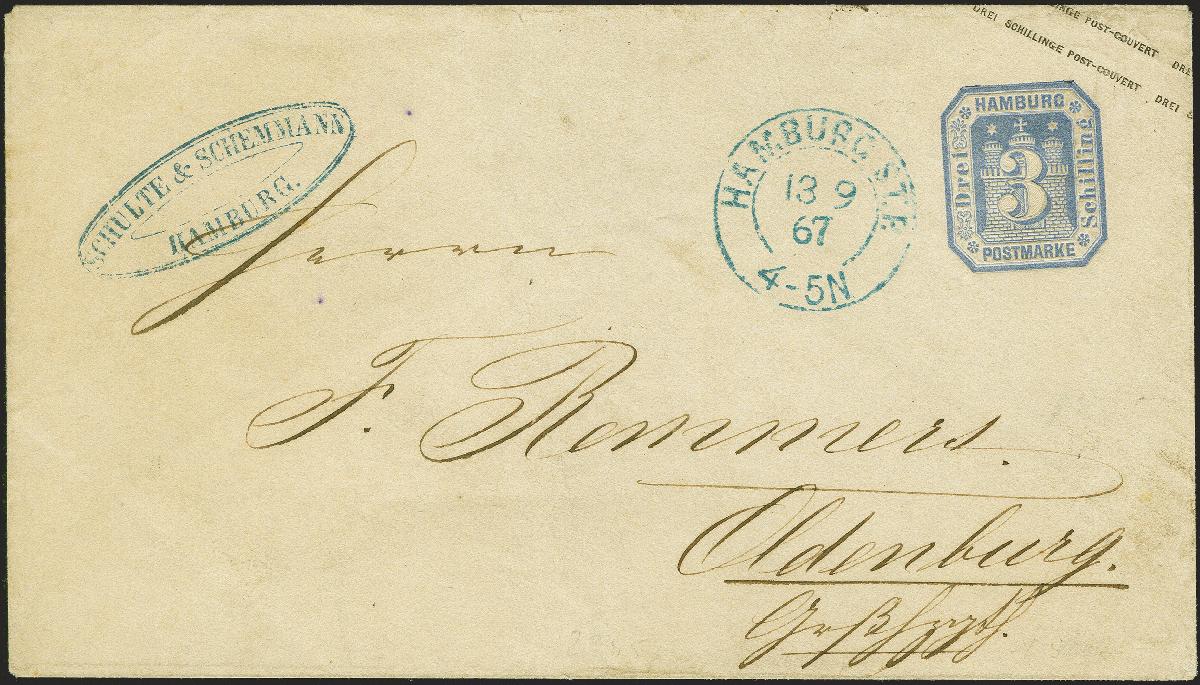 INGE POST-COUVERT DREI
DREI SCHILLINGE POST-COUVERT DREI S
SCHULTE & SCHEMMANN
HAMBURG.
HAMBURG ST.P.
13 9
67
4-5N
HAMBURG
Drei
3
Schilling
POSTMARKE
Herrn
F. Remmers.
Oldenburg.